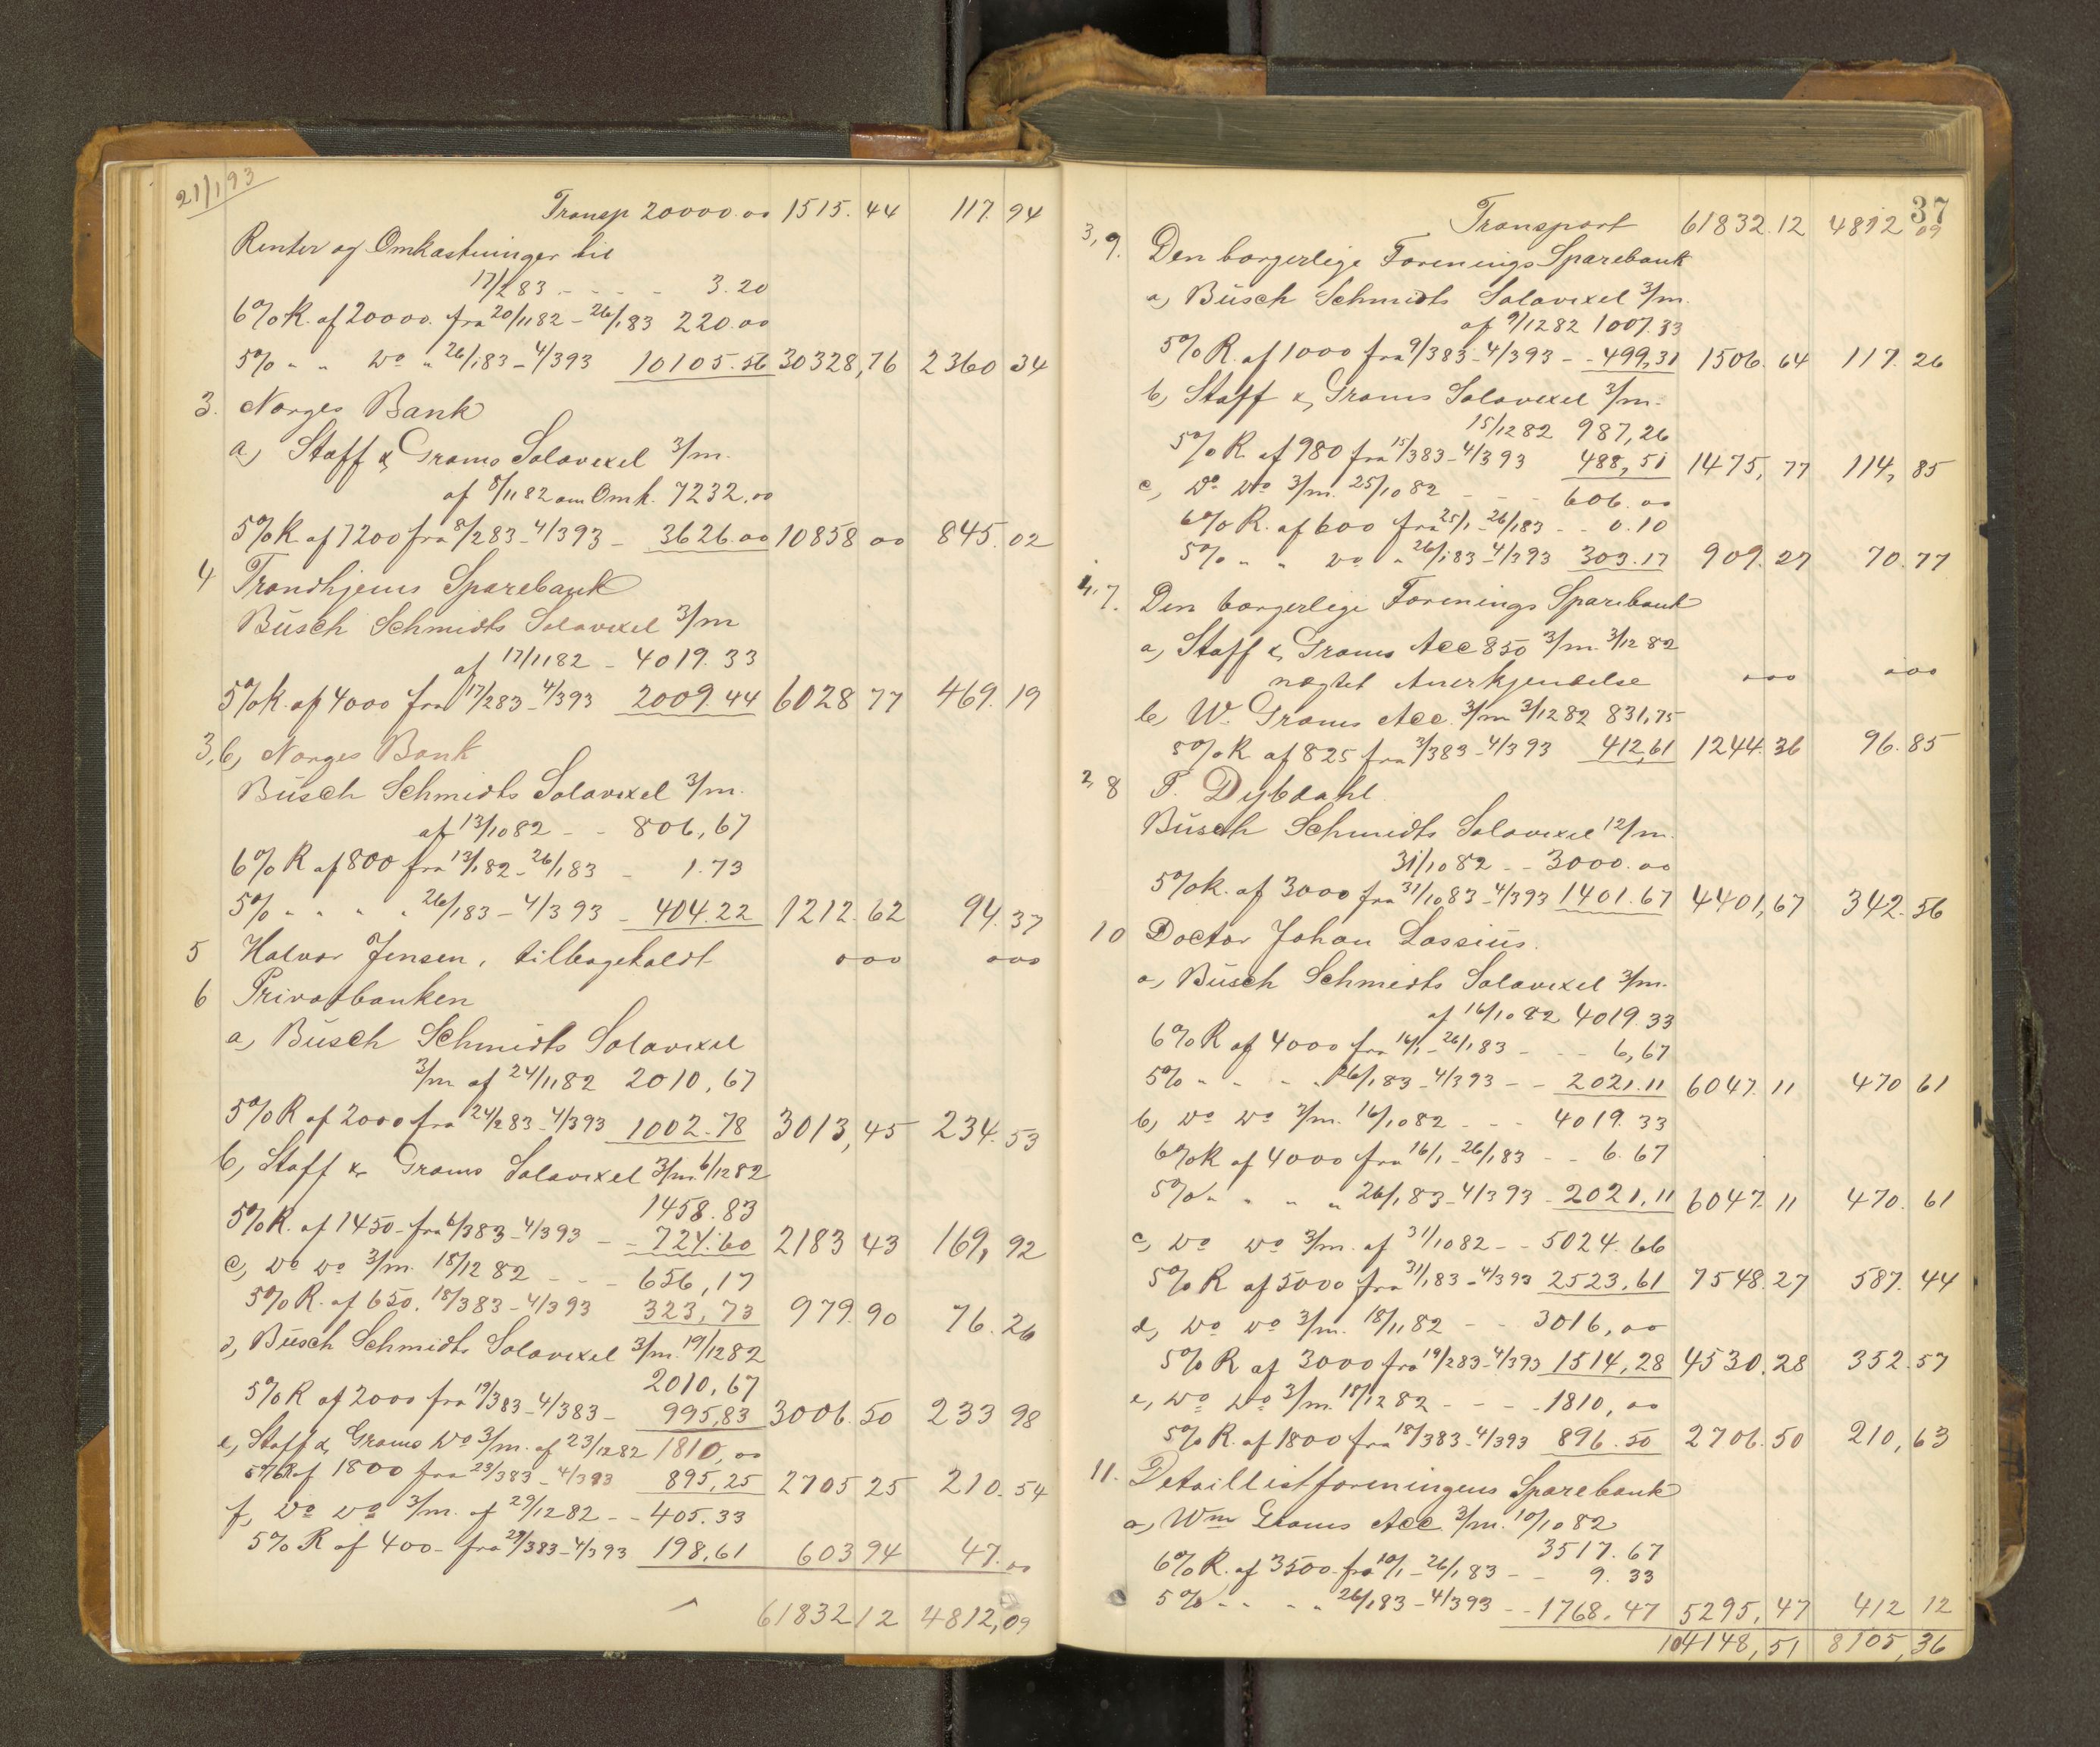 21/1 93
Transp 20000.00 1515.44 117.94
Renter og Omkastninger til
17/2 83 - - - - 3.20
6% R. af 20000. fra 20/11 82 - 26/1 83 220.00
5% " " Do " 26/1 83 - 4/3 93 10105.56 30328,76 2360 34
3. Norges Bank
a, Staff & Grams Solavexel 3/m.
af 8/11 82 om Omk. 7232.00
5% R af 7200 fra 8/2 83 - 4/3 93 - 3626.00 10858 00 845.02
4 Trondhjems Sparebank
Büsch Schmidts Solavexel 3/m
af 17/11 82 - 4019.33
5% R. af 4000 fra 17/2 83 - 4/3 93 2009.44 6028 77 469.19
3, b, Norges Bank
Büsch Schmidts Solavexel 3/m.
af 13/10 82 - - 806,67
6% R af 800 fra 13/1 82 - 26/1 83 - 1.73
5% " " " " 26/1 83 - 4/3 93 - 404.22 1212.62 94.37
5 Halvor Jensen, tilbageholdt 000 000
6 Privatbanken
a, Büsch Schmidts Solavexel
3/m af 24/11 82 2010,67
5% R af 2000 fra 24/2 83 - 4/3 93 1002.78 3013,45 234.53
b, Staff & Grams Solavexel 3/m. 6/12 82
1458.83
5% R. af 1450 - fra 6/3 83 - 4/3 93 - - 724.60 2183 43 169,92
c, Do Do 3/m. 18/12 82 - - - 656,17
5% R. af 650. 18/3 83 - 4/3 93 323,73 979.90 76.26
d, Büsch Schmidts Solavexel 3/m. 19/12 82
2010,67
5% R af 2000 fra 19/3 83 - 4/3 83 - 995,83 3006.50 233 98
e, Staff & Grams Do 3/m. af 23/12 82 1810,00
5% R af 1800 fra 23/3 83 - 4/3 93 895,25 2705 25 210.54
f, Do Do 3/m. af 29/12 82 - - 405.33
5% R af 400 - fra 29/3 83 - 4/3 93 198,61 603 94 47.00
61832 12 4812,09
37
Transport 61832.12 4812 09
3, 9. Den borgerlige Forenings Sparebank
a, Büsch Schmidts Solavexel 3/m.
af 9/12 82 1007.33
5% R. af 1000 fra 9/3 83 - 4/3 93 - - 499,31 1506.64 117.26
b, Staff & Grams Solavexel 3/m.
15/12 82 987,26
5% R. af 980 fra 15/3 83 - 4/3 93 488,51 1475,77 114,85
c, Do Do 3/m. 25/10 82 - - - 606.00
6% R. af 600 fra 25/1 - 26/1 83 - - 0.10
5% " " Do " 26/1 83 - 4/3 93 303.17 909.27 70.77
4, 7. Den borgerlige Forenings Sparebank
a, Staff & Grams Acc 850 3/m. 3/12 82
nægtet Anerkjendelse 000 000
b, W. Grams Acc. 3/m 3/12 82 831,75
5% R af 825 fra 3/3 83 - 4/3 93 412,61 1244.36 96.85
2, 8 P. Dybdahl
Büsch Schmidts Solavexel 12/m.
31/10 82 - - 3000.00
5% R. af 3000 fra 31/10 83 - 4/3 93 1401.67 4401,67 342.56
10 Doctor Johan Lossius.
a, Büsch Schmidts Solavexel 3/m.
af 16/10 82 4019.33
6% R af 4000 fra 16/1 - 26/1 83 - - - 6,67
5% " " " " 26/1 83 - 4/3 93 - - 2021.11 6047.11 470 61
b, Do Do 3/m. 16/10 82 - - - 4019.33
6% R af 4000 fra 16/1 - 26/1 83 - - 6.67
5% " " " " 26/1 83 - 4/3 93 - 2021,11 6047.11 470.61
c, Do Do 3/m. af 31/10 82 - - 5024.66
5% R af 5000 fra 31/1 83 - 4/3 93 2523,61 7548.27 587.44
d, Do Do 3/m. 18/11 82 - - 3016,00
5% R af 3000 fra 19/2 83 - 4/3 93 1514,28 4530.28 352.57
e, Do Do 3/m. 18/12 82 - - - - 1810,00
5% R. af 1800 fra 18/3 83 - 4/3 93 896.50 2706.50 210,63
11. Detaillistforeningens Sparebank
a, Wm Grams Acc 3/m. 10/10 82
3517.67
6% R. af 3500. fra 10/1 - 26/1 83 - - 9.33
5% " " " " 26/1 83 - 4/3 93 - - 1768.47 5295,47 412 12
104148,51 8105,36